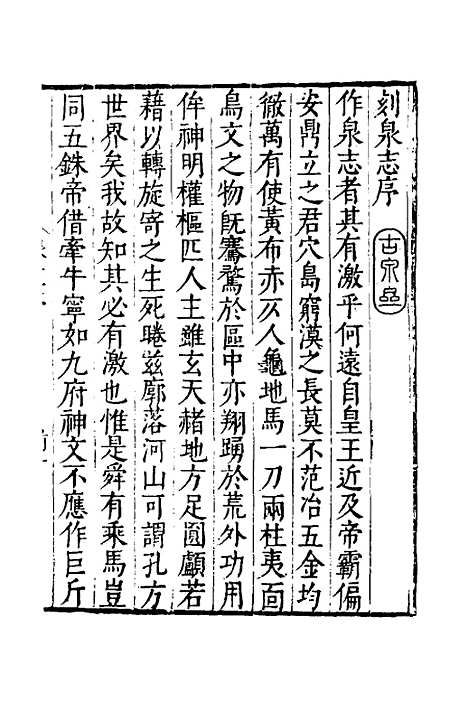 刻泉志序
作泉志者其有激乎何遠自皇王近及帝霸偏
安鼎立之君穴島窮漠之長莫不范冶五金均
徹萬有使黃布赤仄人龜地馬一刀兩柱夷面
鳥文之物既騫騖於區中亦翔踴於荒外功用
侔神明權樞匹人主雖玄天赭地方足圓顱若
藉以轉旋寄之生死睠兹廓落河山可謂孔方
世界矣我故知其必有激也惟是舜有乘馬豈
同五銖帝借牽牛寧如九府神文不應作巨斤